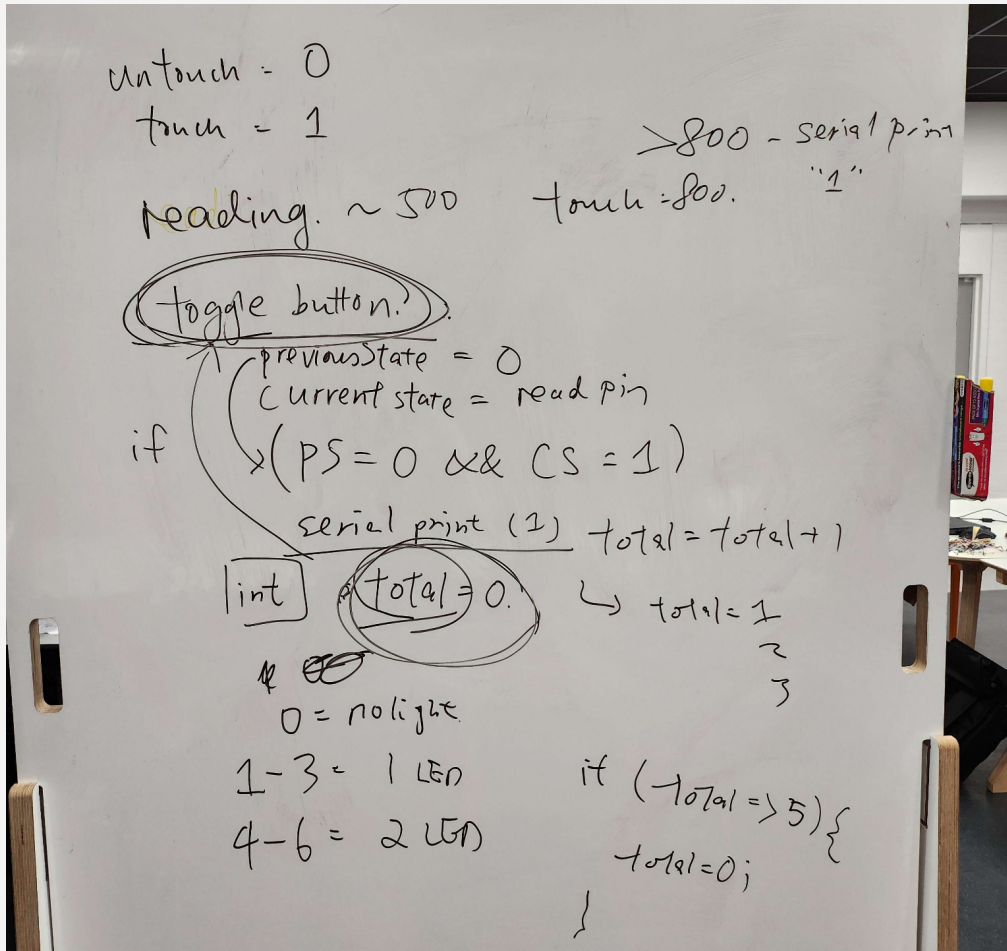 untouch = 0
touch = 1
>800 - serial print
"1"
reading. ~ 500
touch = 800.
toggle button?
previousState = 0
Current state = read pin
if (PS = 0 && CS = 1)
serial print (1)
total = total + 1
int total = 0.
↳ total = 1
2
3
0 = no light.
1-3 = 1 LED
4-6 = 2 LED
if (total => 5) {
total = 0;
}